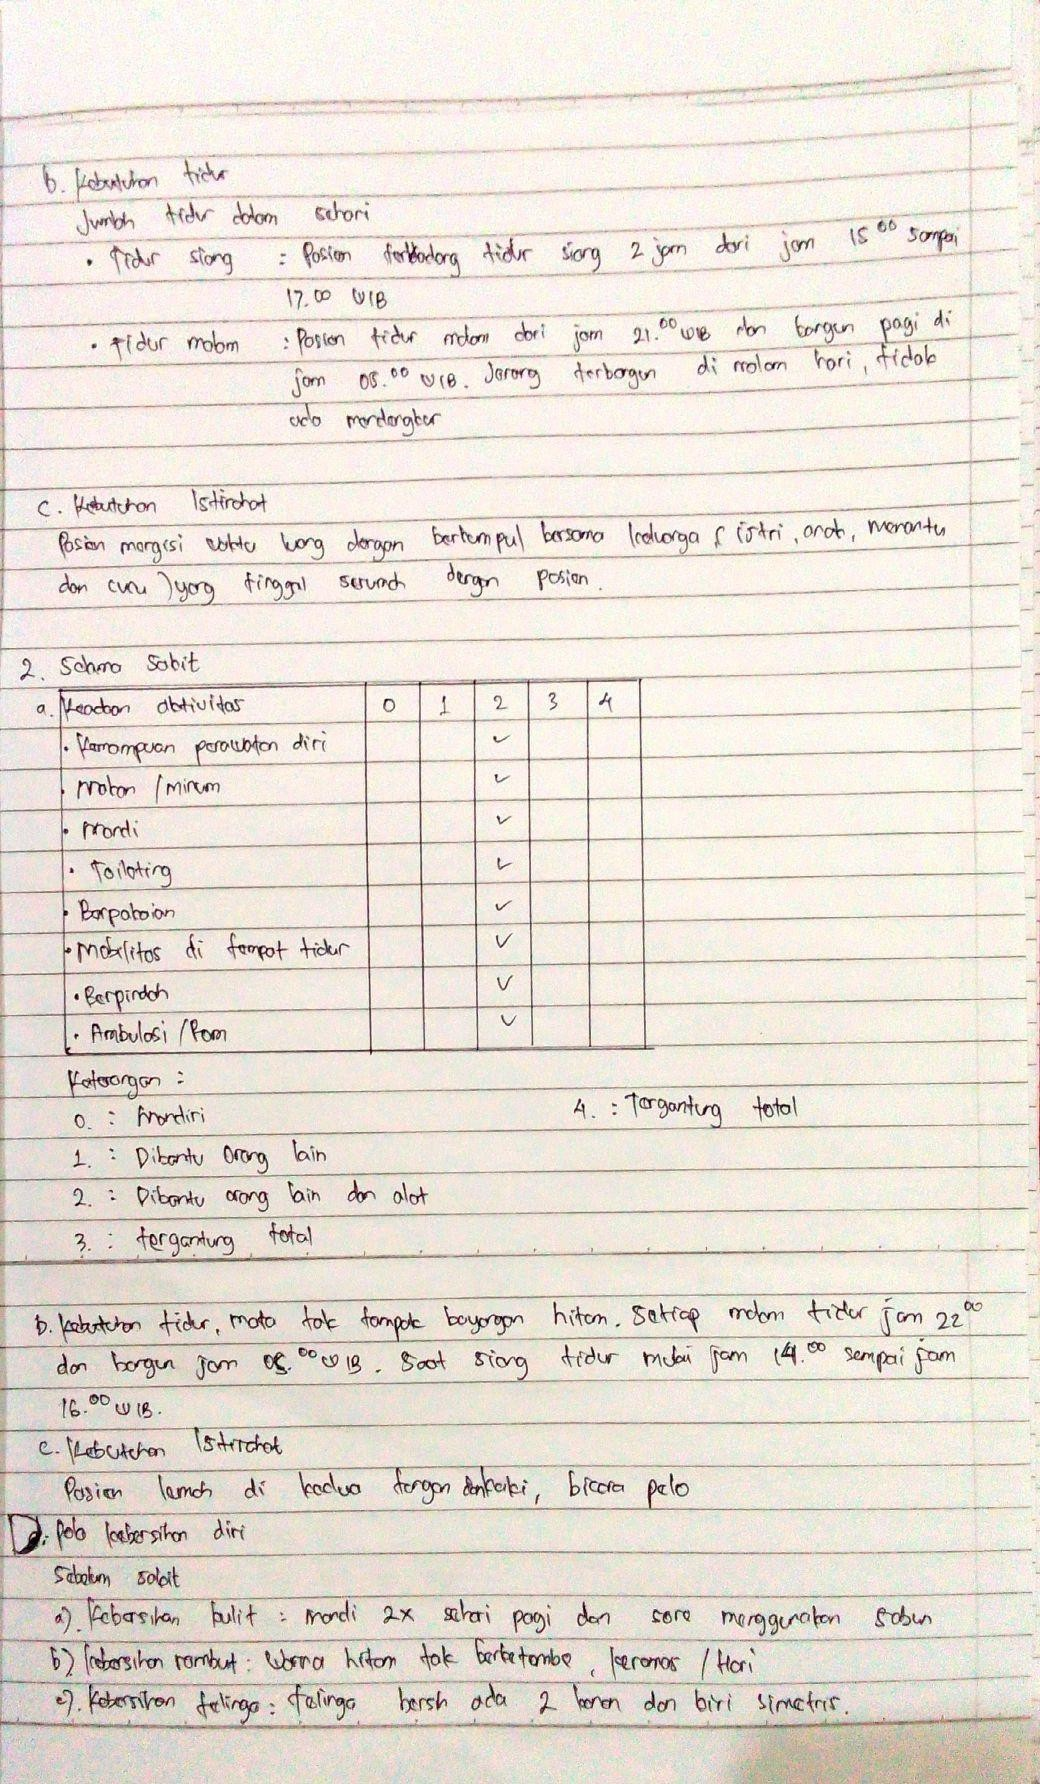 b. Kebutuhan tidur
Jumlah tidur dalam sehari
• Tidur siang : Pasien terkadang tidur siang 2 jam dari jam 15.00 sampai
17.00 WIB
• Tidur malam : Pasien tidur malam dari jam 21.00 WIB dan bangun pagi di
jam 05.00 WIB. Jarang terbangun di malam hari, tidak
ada mendengkur
c. Kebutuhan Istirahat
Pasien mengisi waktu luang dengan berkumpul bersama keluarga ( istri, anak, menantu
dan cucu ) yang tinggal serumah dengan pasien.
2. Selama Sakit
a. Keadaan aktivitas 0 1 2 3 4
• Kemampuan perawatan diri ✓
• Makan / Minum ✓
• Mandi ✓
• Toileting ✓
• Berpakaian ✓
• Mobilitas di tempat tidur ✓
• Berpindah ✓
• Ambulasi / Rom ✓
Keterangan :
0. : Mandiri 4. : Tergantung total
1. : Dibantu Orang lain
2. : Dibantu orang lain dan alat
3. : tergantung total
b. Kebutuhan tidur, mata tak tampak bayangan hitam. Setiap malam tidur jam 22.00
dan bangun jam 05.00 WIB. Saat siang tidur mulai jam 14.00 sempai jam
16.00 WIB.
c. Kebutuhan Istirahat
Pasien lemah di kedua tangan dan kaki, bicara pelo
D. Pola kebersihan diri
Sebelum sakit
a). Kebersihan kulit : mandi 2x sehari pagi dan sore menggunakan sabun
b) kebersihan rambut : Warna hitam tak berketombe, keramas / Hari
c). Kebersihan telinga : telinga bersh ada 2 kanan dan kiri simetris.